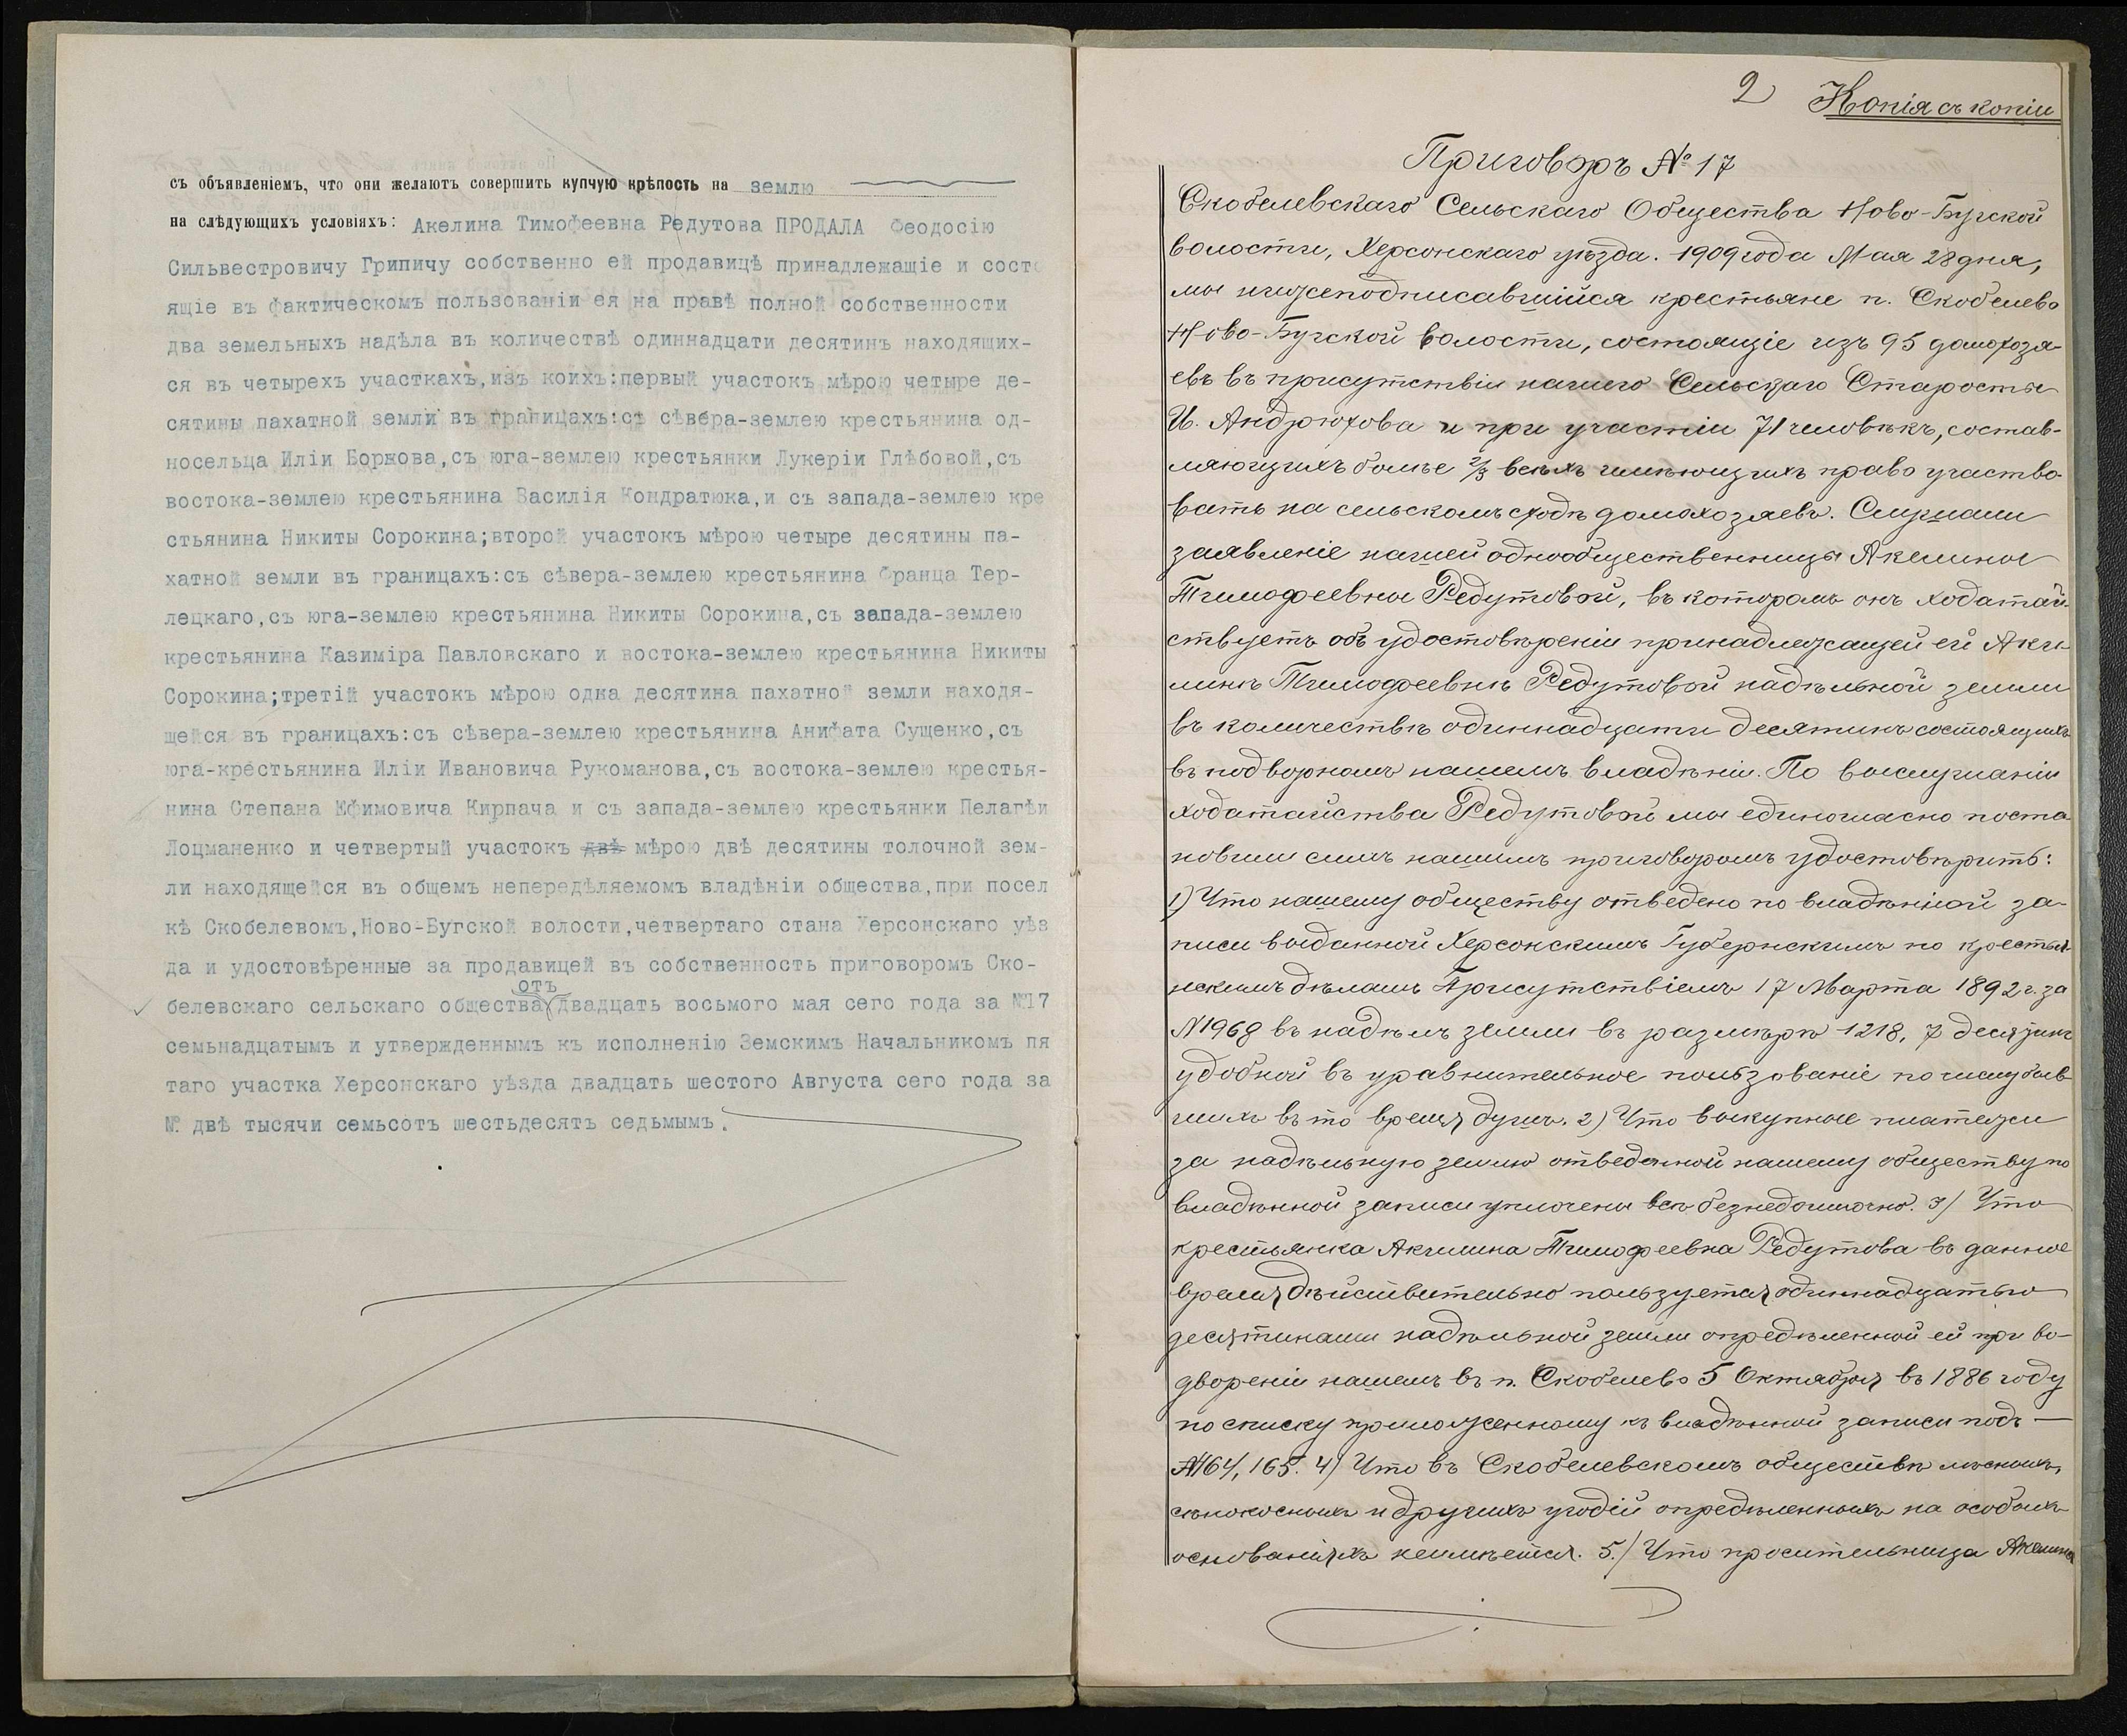 съ объявленіемъ, что они желаютъ совершить купчую крѣпость на землю
на слѣдующихъ условіяхъ: Акелина Тимофеевна Редутова ПРОДАЛА Феодосію
Сильвестровичу Грипичу собственно ей продавицѣ принадлежащіе и состо
ящіе въ фактическомъ пользованіи ея на правѣ полной собственности
два земельныхъ надѣла въ количествѣ одиннадцати десятинъ находящих-
ся въ четырехъ участкахъ,изъ коихъ:первый участокъ мѣрою четыре де-
сятины пахатной земли въ границахъ:съ сѣвера-землею крестьянина од-
носельца Иліи Боржова,съ юга-землею крестьянки Лукеріи Глѣбовой,съ
востока-землею крестьянина Василія Кондратюка,и съ запада-землею кре
стьянина Никиты Сорокина;второй участокъ мѣрою четыре десятины па-
хатной земли въ границахъ:съ сѣвера-землею крестьянина Франца Тер-
лецкаго,съ юга-землею крестьянина Никиты Сорокина,съ запада-землею
крестьянина Казиміра Павловскаго и востока-землею крестьянина Никиты
Сорокина;третій участокъ мѣрою одна десятина пахатной земли находя-
щейся въ границахъ:съ сѣвера-землею крестьянина Анифата Сущенко,съ
юга-крестьянина Иліи Ивановича Рукоманова,съ востока-землею крестья-
нина Степана Юфимовича Кирпача и съ запада-землею крестьянки Пелагѣи
Лоцманенко и четвертый участокъ двѣ мѣрою двѣ десятины толочной зем-
ли находящейся въ общемъ непередѣляемомъ владѣніи общества,при посел
кѣ Скобелевомъ,Ново-Бугской волости,четвертаго стана Херсонскаго уѣз
да и удостовѣренные за продавицей въ собственность приговоромъ Ско-
отъ
белевскаго сельскаго общества двадцать восьмого мая сего года за №17
семьнадцатымъ и утвержденнымъ къ исполненію Земскимъ Начальникомъ пя
таго участка Херсонскаго уѣзда двадцать шестого Августа сего года за
№ двѣ тысячи семьсотъ шестьдесятъ седьмымъ.
2 Копія съ копіи
Приговоръ № 17
Скобелевскаго Сельскаго Общества Ново-Бугской
волости, Херсонскаго уѣзда. 1909 года Мая 28 дня,
мы нижеподписавшійся крестьяне п. Скобелево
Ново-Бугской волости, состоящіе изъ 95 домохозя-
евъ въ присутствіи нашего Сельскаго Старосты
И. Андрюхова и при участіи 71 человѣкъ, состав-
ляющихъ болѣе 2/3 всѣхъ имѣющихъ право участво-
вать на сельскомъ сходѣ домохозяевъ. Слушали
заявленіе нашей однообщественницы Акелины
Тимофеевны Редутовой, въ которомъ онъ ходатай-
ствуетъ объ удостовѣреніи принадлежащей ей Аки-
линѣ Тимофеевнѣ Редутовой надѣльной земли
въ количествѣ одиннадцати десятинъ состоящихъ
въ подворномъ нашемъ владѣніи. По выслушаніи
ходатайства Редутовой мы единогласно поста
новили симъ нашимъ приговоромъ удостовѣрить:
1) Что нашему обществу отведено по владѣнной за-
писи выданной Херсонскимъ Губернскимъ по крестья-
нскимъ дѣламъ Присутствіемъ 17 Марта 1892 г. за
№1968 въ надѣлъ земли въ размѣрѣ 1218,7 десятинъ
удобной въ уравнительное пользованіе по числу быв-
шихъ въ то время душъ. 2) Что выкупные платежи
за надѣльную землю отведенной нашему обществу по
владѣнной записи уплочены всѣ безнедоимочно. 3) Что
крестьянка Акилина Тимофеевна Редутова въ данное
время дѣйствительно пользуется одиннадцатью
десятинами надѣльной земли опредѣленной ей при во-
двореніи нашемъ въ п. Скобелево 5 Октября въ 1886 году
по списку приложенному къ владѣнной записи подъ —
№164, 165. 4) Что въ Скобелевскомъ обществѣ лѣсныхъ,
сѣнокосныхъ и другихъ угодій опредѣленныхъ на особыхъ
основаніяхъ неимѣется. 5) Что просительница Акелина